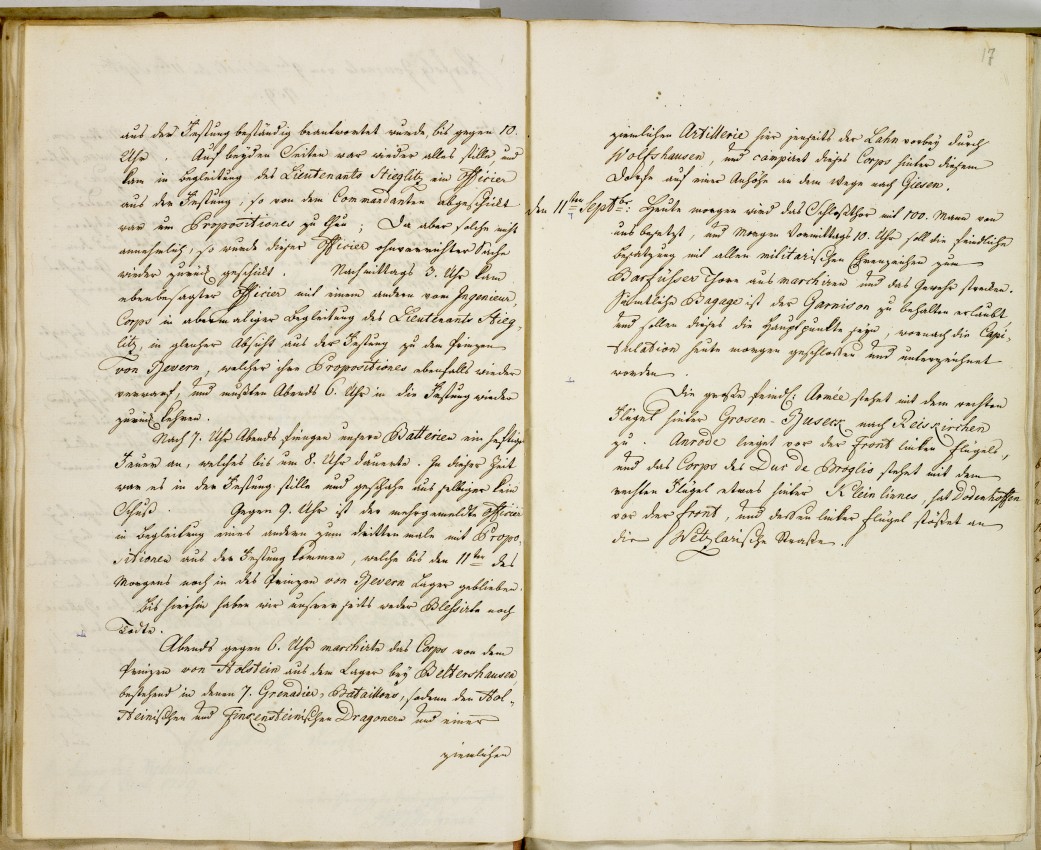 aus der Festung beständig beantwortet wurde, bis gegen 10.
Uhr. Auf beyden Seiten war wieder alles stille, und
kam in Begleitung des Lieutenants Stieglitz ein Officier
aus der Festung, so von dem Commandanten abgeschickt
war um Propositiones zu thun; Da aber solche nicht
annehmlich, so wurde dieser Officier ohnverrichter Sache
wieder zurück geschickt. Nachmittags 3. Uhr kam
ebenbesagter Officier mit einem andern vom Ingenieur
Corps in abermaliger Begleitung des Lieutenants Stieg-
litz, in gleicher Absicht aus der Festung zu dem Prinzen
von Bevern, welcher ihre Propositiones ebenfalls wieder
verwarf, und mußten Abends 6. Uhr in die Festung wieder
zurück kehren.
Nach 7. Uhr Abends fiengen unsere Batterien ein heftiges
Feuer an, welches bis um 8. Uhr dauerte. In dieser Zeit
war es in der Festung stille und geschahe aus selbiger kein
Schuß. Gegen 9. Uhr ist der mehrgemeldte Officier
in Begleitung eines andern zum dritten male mit Propo-
sitionen aus der Festung kommen, welche bis den 11ten des
Morgens noch in des Prinzen von Bevern Lager geblieben.
Bis hierhin haben wir unserer seits weder Blessirte noch
Todte.
Abends gegen 6. Uhr marchirte das Corps von dem
Prinzen von Holstein aus dem Lager bey Beltershausen
bestehend in denen 7. Grenadier Bataillons, sodenn den Hol-
steinischen und Finkensteinischen Dragonern und einer
ziemlichen
17
ziemlichen Artillerie hier jenseits der Lahn vorbey durch
Wolfshausen, und campiret dieses Corps hinter diesem
Dorfe auf einer Anhöhe an dem Wege nach Giesen.
den 11ten Septbr: Heute morgen wird das Schloßthor mit 100. Mann von
uns besetzt, und Morgen Vormittags 10. Uhr soll die feindliche
Besatzung mit allen militarischen Ehrenzeichen zum
Barfüsser Thore aus marchiren und das Gewehr strecken.
Sämtliche Bagage ist der Garnison zu behalten erlaubt
und sollen dieses die Hauptpunkte seyn, wornach die Capi-
tulation heute morgen geschlossen und unterzeichnet
worden.
Die große feindl: Armée stehet mit dem rechten
Flügel hinter Grosen-Buseck nach Reiskirchen
zu. Anrode lieget vor der Front linker Flügels,
und das Corps des Duc de Broglio stehet mit dem
rechten Flügel etwas hinter Kleinlienes, hat Dodenhoffen
vor der Front, und dessen linker Flügel stößet an
die Wetzlarische Straße.